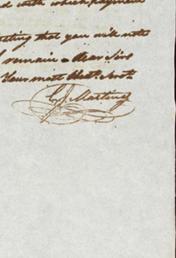 d with which payment
ting that you will note
I remain - dear Sirs
Your most Obdt Srvt
C J Martin